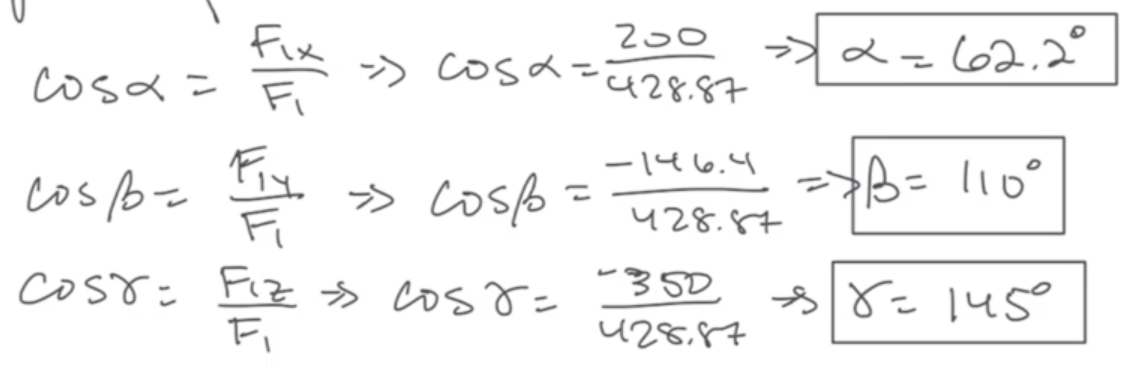 cosα = F₁ₓ/F₁ => cosα = 200/428.87 => α = 62.2°
cosβ = F₁y/F₁ => cosβ = -146.4/428.87 => β = 110°
cosγ = F₁z/F₁ => cosγ = -350/428.87 => γ = 145°